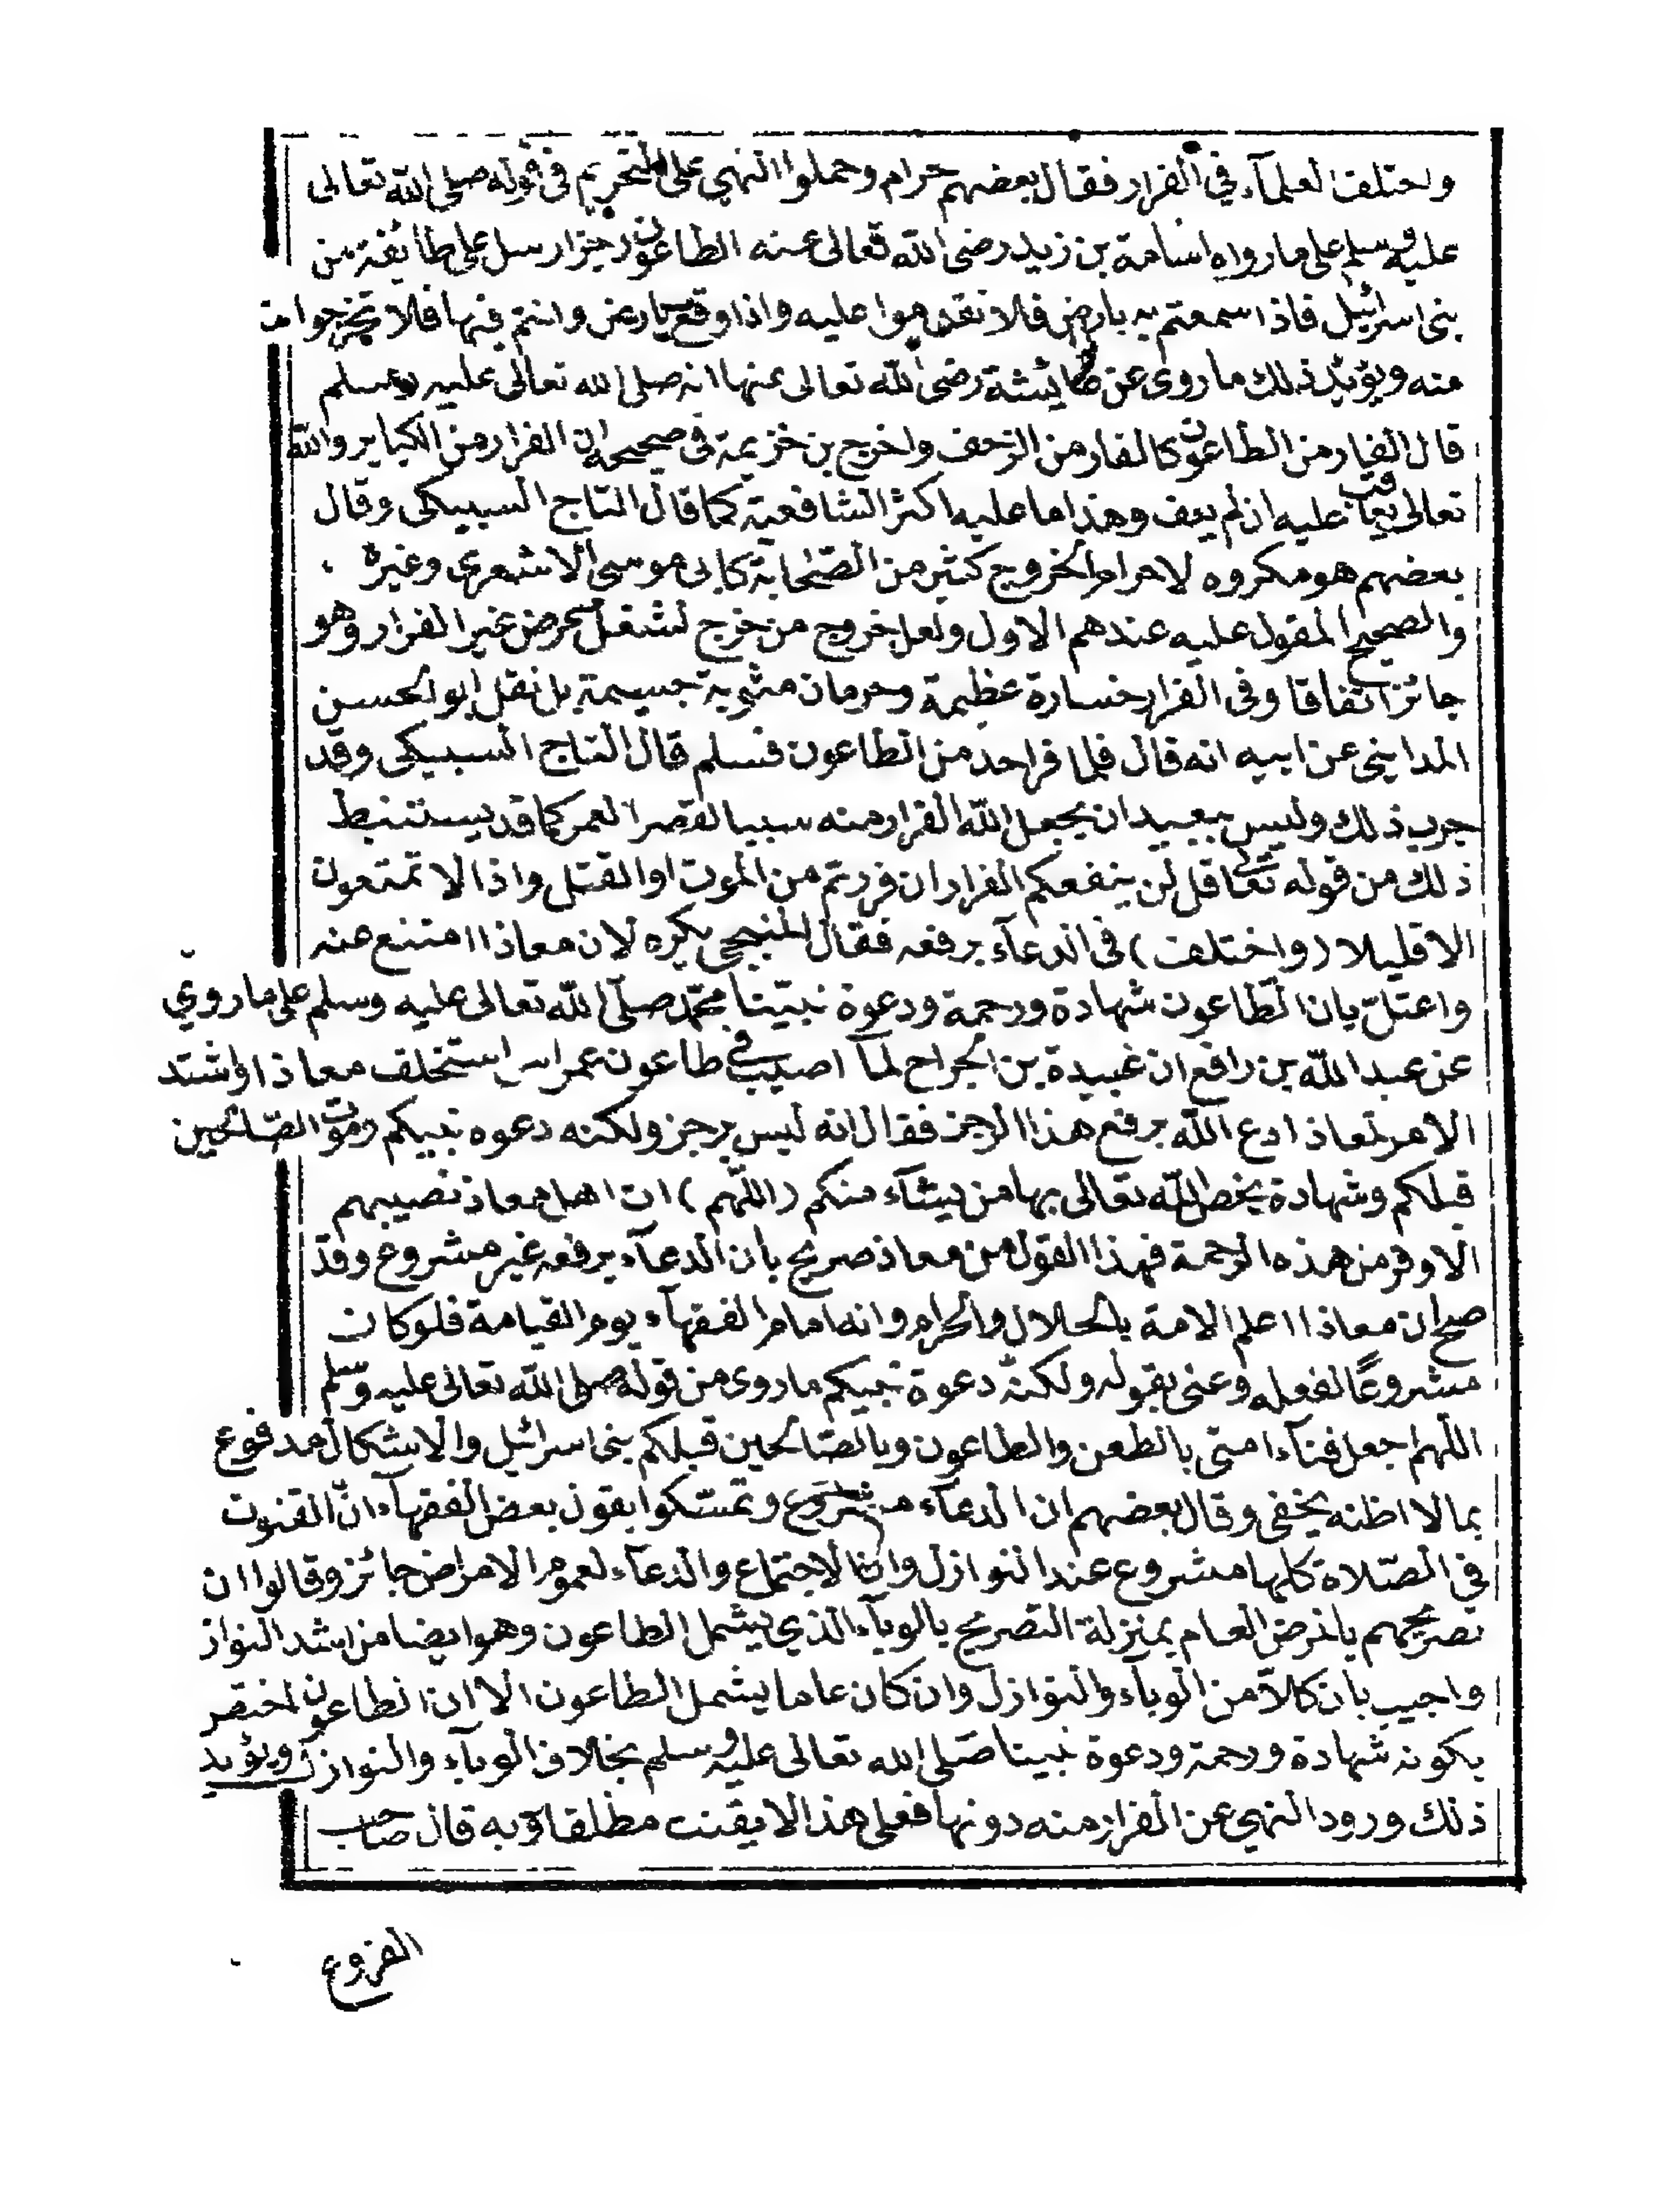 واختلف العلمآء في الفرار فقال بعضهم حرام وحملوا النهي على التحريم في قوله صلى الله تعالى
عليه وسلم على ما رواه اسامة بن زيد رضى الله تعالى عنه الطاعون رجز ارسل على طائفة من
بنى اسرائيل فاذا سمعتم به بارض فلا تقدموا عليه واذا وقع بارض وانتم فيها فلا تخرجوا
منه ويؤيد ذلك ما روى عن عايشة رضى الله تعالى عنها انه صلى الله تعالى عليه وسلم
قال الفار من الطاعون كالفار من الزحف واخرج بن خزيمة فى صحيحه ان الفرار من الكباير والله
تعالى يعاقب عليه ان لم يعف وهذا ما عليه اكثر الشافعية كما قال التاج السبيكى وقال
بعضهم هو مكروه لا حرام لخروج كثير من الصحابة كابى موسى الاشعرى وغيره
والصحيح المقول عليه عندهم الاول ولعل خروج من خرج لشغل عرض غير الفرار وهو
جائز اتفاقا وفى الفرار خسارة عظيمة وحرمان مثوبة جسيمة بل نقل ابو الحسين
المدايني عن ابيه انه قال فلما فر احد من الطاعون فسلم قال التاج السبيكى وقد
جرب ذلك وليس ببعيد ان يجعل الله الفرار منه سببا لقصر العمر كما قد يستنبط
ذلك من قوله تعالى قل لن ينفعكم الفرار ان فررتم من الموت او القتل واذا لا تمتعون
الا قليلا (واختلف) فى الدعآء برفعه فقال المنبجى يكره لان معاذا امتنع عنه
واعتلّ بان الطاعون شهادة ورحمة ودعوة نبيّنا محمّد صلّى الله تعالى عليه وسلم على ما روي
عن عبد الله بن رافع ان عبيدة بن الجراح لمآ اصيب في طاعون عمواس استخلف معاذا واشتد
الامر لمعاذ ادع الله برفع هذا الرجز فقال انه ليس برجز ولكنه دعوه نبيكم وموت الصّالحين
قبلكم وشهادة يخص الله تعالى بها من يشآء منكم (اللّهم) ات اهل معاذ نصيبهم
الاوفر من هذه الرحمة فهذا القول من معاذ صريح بان الدعآء برفعه غير مشروع وقد
صح ان معاذا اعلم الامة بالحلال والحرام وانه امام الفقهآء يوم القيامة فلو كان
مشروعًا لفعله وعنى بقوله ولكنه دعوة نبيكم ما روى من قوله صلى الله تعالى عليه وسلم
اللّهم اجعل فنآء امتى بالطعن والطاعون وبالصّالحين قبلكم بنى اسرائيل والاشكال مدفوع
بما لا اظنه يخفى وقال بعضهم ان الدعآء مشروع وتمسّكوا بقول بعض الفقهآء انّ القنوت
في الصّلاة كلها مشروع عند النوازل وان الاجتماع والدعآء لعموم الامراض جائز وقالوا ان
تصريحهم بالمرض العام بمنزلة التصريح بالوبآء الذي يشمل الطاعون وهو ايضا من اشد النواز
واجيب بان كالاّ من الوبآء والنوازل وان كان عاما يشمل الطاعون الا ان الطاعون اختص
بكونه شهادة ورحمة ودعوة نبينا صلّى الله تعالى عليه وسلم بخلاف الوبآء والنوازل ويؤيد
ذلك ورود النهي عن الفرار منه دونها فعلى هذا لا يقنت مطلقا وبه قال صاحب
الفروع